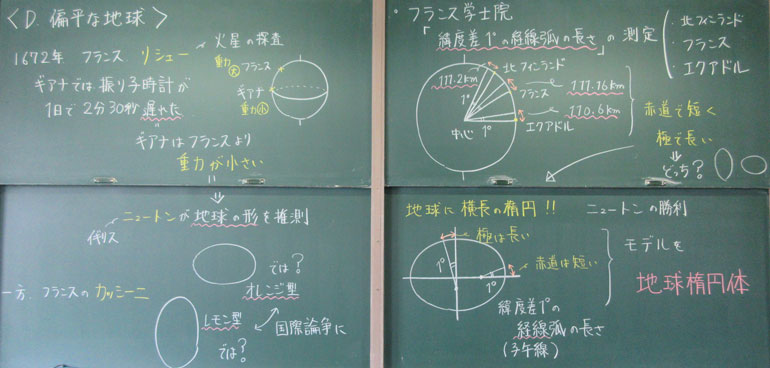 〈D. 偏平な地球〉
1672年 フランス リシェー
火星の探査
ギアナでは振り子時計が
1日で2分30秒遅れた
重力大 フランス
ギアナ
重力小
ギアナはフランスより
重力が小さい
ニュートンが地球の形を推測
イギリス
では?
オレンジ型
一方、フランスのカッシーニ
レモン型
では?
国際論争に
フランス学士院
「緯度差1°の経線弧の長さ」の測定
・北フィンランド
・フランス
・エクアドル
111.2km
北フィンランド
フランス
111.16km
110.6km
エクアドル
1°
中心
1°
赤道で短く
極で長い
どっち?
地球は横長の楕円!!
ニュートンの勝利
極は長い
1°
赤道は短い
1°
緯度差1°の
経線弧の長さ
(子午線)
モデルを
地球楕円体